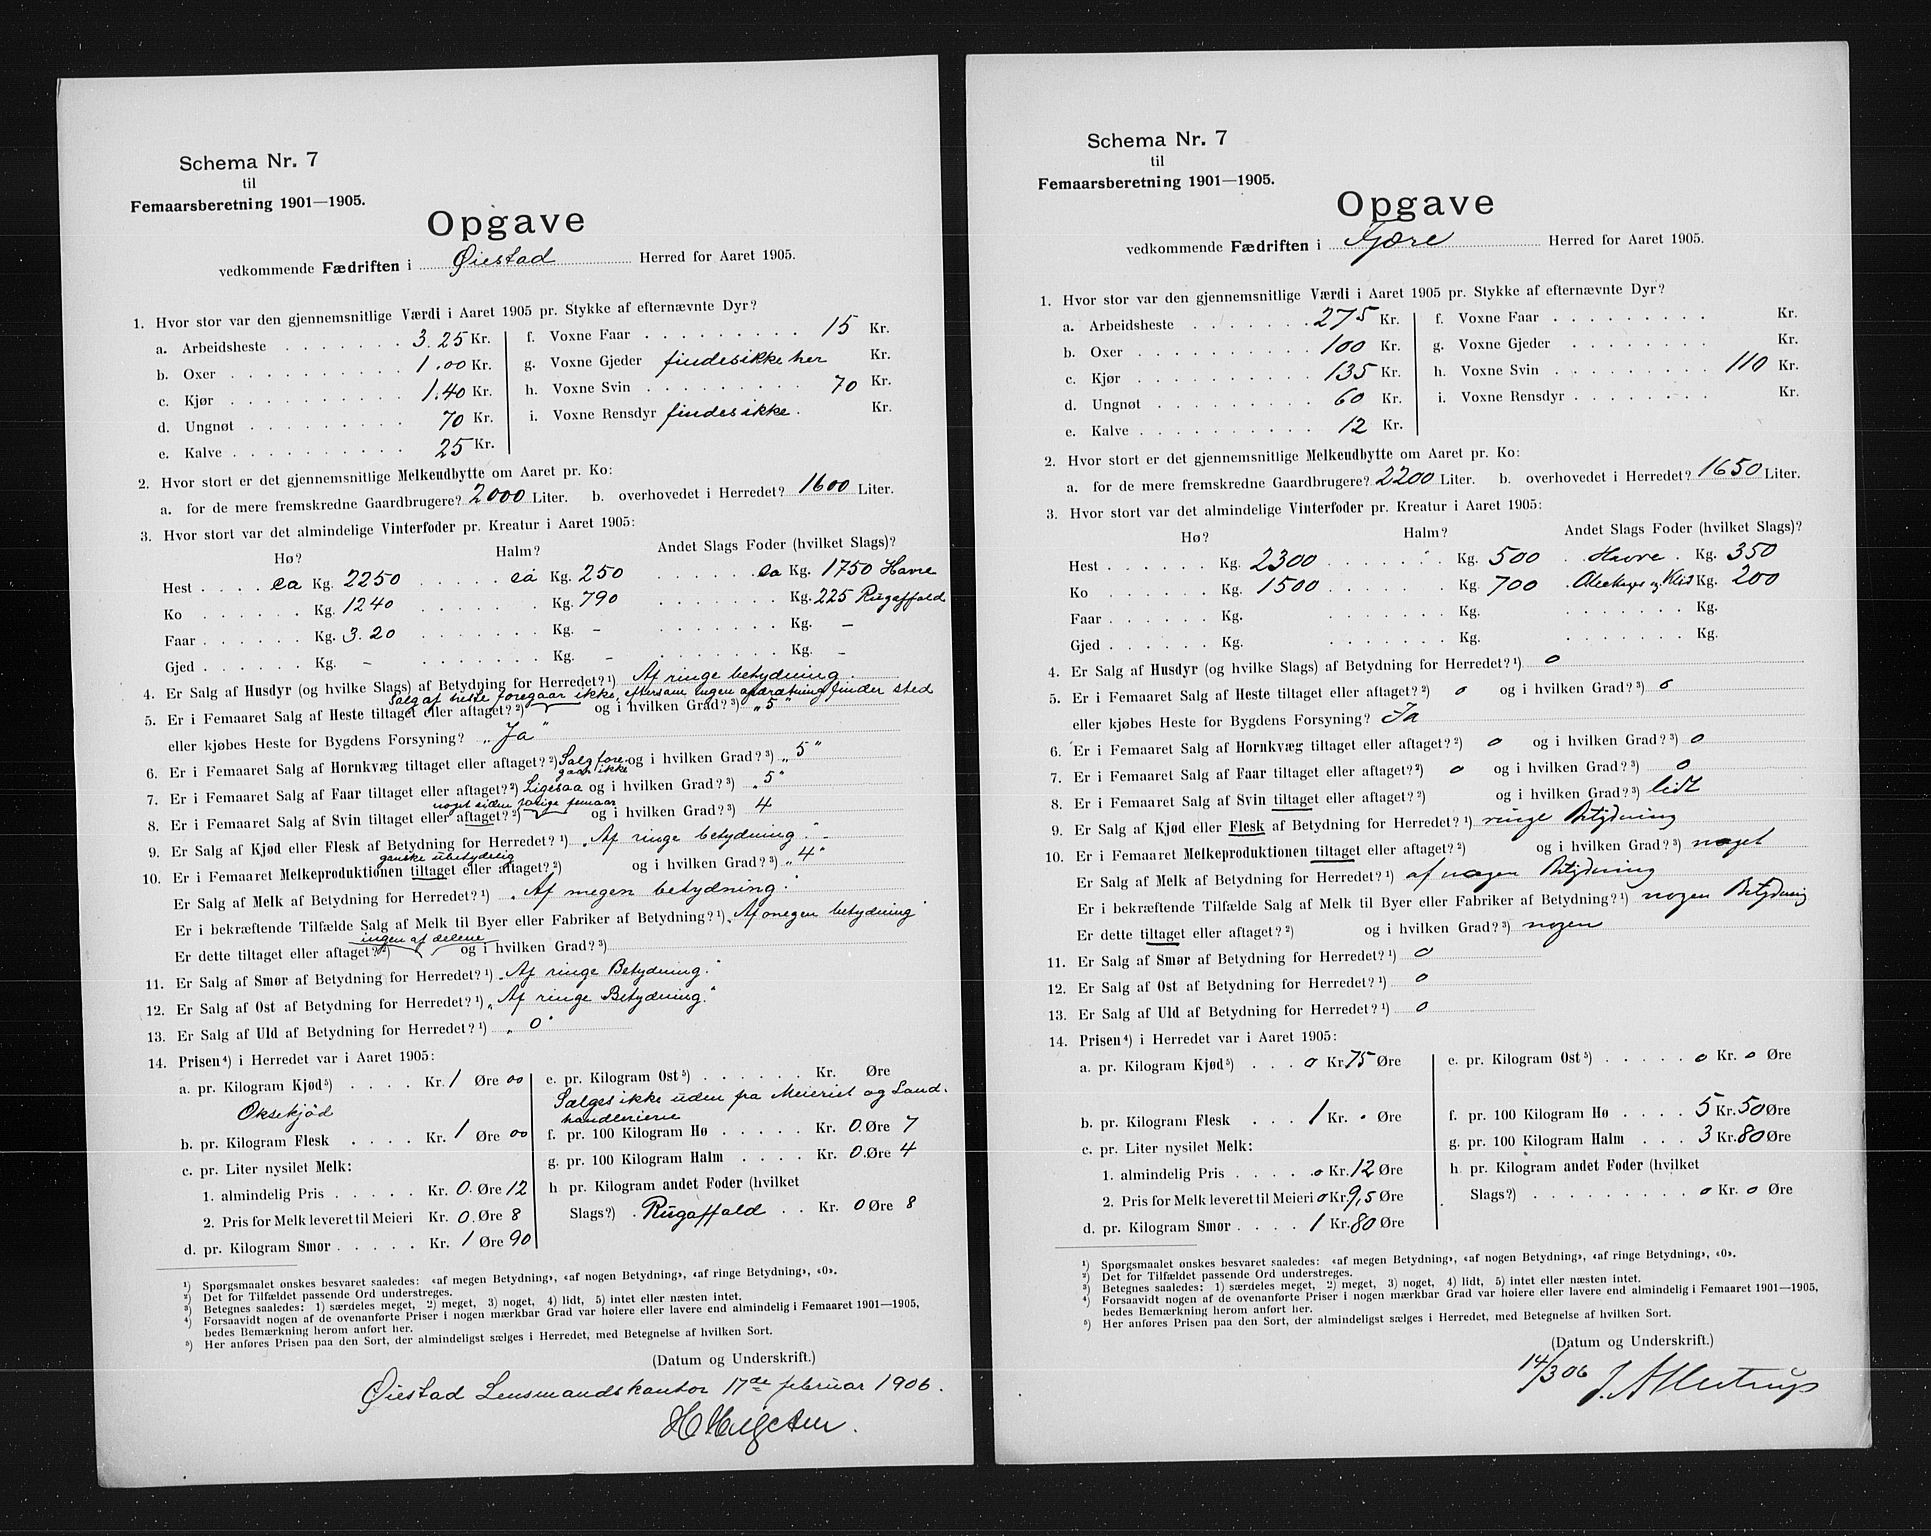 Schema Nr. 7
til
Femaarsberetning 1901—1905.
Opgave
vedkommende Fædriften i Øiestad Herred for Aaret 1905.
1. Hvor stor var den gjennemsnitlige Værdi i Aaret 1905 pr. Stykke af efternævnte Dyr?
a. Arbeidsheste . . . . . . . 3.25 Kr.
b. Oxer . . . . . . . . . . 1.00 Kr.
c. Kjør . . . . . . . . . . 1.40 Kr.
d. Ungnøt . . . . . . . . . 70 Kr.
e. Kalve . . . . . . . . . . 25 Kr.
f. Voxne Faar . . . . . . . . . 15 Kr.
g. Voxne Gjeder findes ikke her Kr.
h. Voxne Svin . . . . . . . . . 70 Kr.
i. Voxne Rensdyr findes ikke . Kr.
2. Hvor stort er det gjennemsnitlige Melkeudbytte om Aaret pr. Ko:
a. for de mere fremskredne Gaardbrugere? 2000 Liter. b. overhovedet i Herredet? 1600 Liter.
3. Hvor stort var det almindelige Vinterfoder pr. Kreatur i Aaret 1905:
Hø? Halm? Andet Slags Foder (hvilket Slags)?
Hest . . . . ca Kg. 2250 . . . . . ca Kg. 250 . . . . . . ca Kg. 1750 Havre
Ko . . . . . . Kg. 1240 . . . . . . . Kg. 790 . . . . . . . Kg. 225 Rugaffald
Faar . . . . . . Kg. 3.20 . . . . . . . Kg. – . . . . . . . Kg. –
Gjed . . . . . . Kg. – . . . . . . . Kg. – . . . . . . . Kg. –
4. Er Salg af Husdyr (og hvilke Slags) af Betydning for Herredet?¹) Af ringe betydning.
Salg af heste foregaar ikke, eftersom ingen opdrætning finder sted
5. Er i Femaaret Salg af Heste tiltaget eller aftaget?²) og i hvilken Grad?³) „5"
eller kjøbes Heste for Bygdens Forsyning? „Ja"
6. Er i Femaaret Salg af Hornkvæg tiltaget eller aftaget?²) Salg foregaar ikke og i hvilken Grad?³) „5"
7. Er i Femaaret Salg af Faar tiltaget eller aftaget?²) Ligesaa og i hvilken Grad?³) „5"
noget siden forige femaar
8. Er i Femaaret Salg af Svin tiltaget eller aftaget?²) og i hvilken Grad?³) 4
9. Er Salg af Kjød eller Flesk af Betydning for Herredet?¹) „Af ringe betydning."
ganske ubetydelig
10. Er i Femaaret Melkeproduktionen tiltaget eller aftaget?²) og i hvilken Grad?³) „4"
Er Salg af Melk af Betydning for Herredet?¹) „Af megen betydning."
Er i bekræftende Tilfælde Salg af Melk til Byer eller Fabriker af Betydning?¹) „Af megen betydning"
ingen af delene
Er dette tiltaget eller aftaget?²) og i hvilken Grad?³)
11. Er Salg af Smør af Betydning for Herredet?¹) „Af ringe Betydning."
12. Er Salg af Ost af Betydning for Herredet?¹) „Af ringe Betydning."
13. Er Salg af Uld af Betydning for Herredet?¹) „0"
14. Prisen⁴) i Herredet var i Aaret 1905:
a. pr. Kilogram Kjød⁵) . . . . Kr. 1 Øre 00
Oksekjød
b. pr. Kilogram Flesk . . . . Kr. 1 Øre 00
c. pr. Liter nysilet Melk:
1. almindelig Pris . . . . . Kr. 0. Øre 12
2. Pris for Melk leveret til Meieri Kr. 0. Øre 8
d. pr. Kilogram Smør . . . . . Kr. 1 Øre 90
e. pr. Kilogram Ost⁵) . . . . . . Kr. Øre
Sælges ikke uden fra Meieriet og Land-
handlerierne
f. pr. 100 Kilogram Hø . . . . . Kr. 0. Øre 7
g. pr. 100 Kilogram Halm . . . . Kr. 0. Øre 4
h pr. Kilogram andet Foder (hvilket
Slags?) . Rugaffald . . Kr. 0 Øre 8
¹) Spørgsmaalet ønskes besvaret saaledes: «af megen Betydning», «af nogen Betydning», «af ringe Betydning», «0».
²) Det for Tilfældet passende Ord understreges.
³) Betegnes saaledes: 1) særdeles meget, 2) meget, 3) noget, 4) lidt, 5) intet eller næsten intet.
⁴) Forsaavidt nogen af de ovenanførte Priser i nogen mærkbar Grad var høiere eller lavere end almindelig i Femaaret 1901—1905,
bedes Bemærkning herom anført her.
⁵) Her anføres Prisen paa den Sort, der almindeligst sælges i Herredet, med Betegnelse af hvilken Sort.
(Datum og Underskrift.)
Øiestad Lensmandskontor 17de februar 1906.
Schema Nr. 7
til
Femaarsberetning 1901—1905.
Opgave
vedkommende Fædriften i Fjære Herred for Aaret 1905.
1. Hvor stor var den gjennemsnitlige Værdi i Aaret 1905 pr. Stykke af efternævnte Dyr?
a. Arbeidsheste . . . . . . . 275 Kr.
b. Oxer . . . . . . . . . . 100 Kr.
c. Kjør . . . . . . . . . . 135 Kr.
d. Ungnøt . . . . . . . . . 60 Kr.
e. Kalve . . . . . . . . . . 12 Kr.
f. Voxne Faar . . . . . . . . . Kr.
g. Voxne Gjeder . . . . . . . . Kr.
h. Voxne Svin . . . . . . . . . 110 Kr.
i. Voxne Rensdyr . . . . . . . . Kr.
2. Hvor stort er det gjennemsnitlige Melkeudbytte om Aaret pr. Ko:
a. for de mere fremskredne Gaardbrugere? 2200 Liter. b. overhovedet i Herredet? 1650 Liter.
3. Hvor stort var det almindelige Vinterfoder pr. Kreatur i Aaret 1905:
Hø? Halm? Andet Slags Foder (hvilket Slags)?
Hest . . . . . . Kg. 2300 . . . . . . . Kg. 500 . Havre . Kg. 350
Ko . . . . . . . Kg. 1500 . . . . . . . Kg. 700 og Klid Kg. 200
Faar . . . . . . Kg. . . . . . . . Kg. . . . . . . . Kg.
Gjed . . . . . . Kg. . . . . . . . Kg. . . . . . . . Kg.
4. Er Salg af Husdyr (og hvilke Slags) af Betydning for Herredet?¹) 0
5. Er i Femaaret Salg af Heste tiltaget eller aftaget?²) 0 og i hvilken Grad?³) 0
eller kjøbes Heste for Bygdens Forsyning? Ja
6. Er i Femaaret Salg af Hornkvæg tiltaget eller aftaget?²) 0 og i hvilken Grad?³) 0
7. Er i Femaaret Salg af Faar tiltaget eller aftaget?²) 0 og i hvilken Grad?³) 0
8. Er i Femaaret Salg af Svin tiltaget eller aftaget?²) og i hvilken Grad?³) lidt
9. Er Salg af Kjød eller Flesk af Betydning for Herredet?¹) ringe Betydning
10. Er i Femaaret Melkeproduktionen tiltaget eller aftaget?²) og i hvilken Grad?³) noget
Er Salg af Melk af Betydning for Herredet?¹) af nogen Betydning
Er i bekræftende Tilfælde Salg af Melk til Byer eller Fabriker af Betydning?¹) nogen Betydning
Er dette tiltaget eller aftaget?²) og i hvilken Grad?³) nogen
11. Er Salg af Smør af Betydning for Herredet?¹) 0
12. Er Salg af Ost af Betydning for Herredet?¹) 0
13. Er Salg af Uld af Betydning for Herredet?¹) 0
14. Prisen⁴) i Herredet var i Aaret 1905:
a. pr. Kilogram Kjød⁵) . . . 0 Kr. 75 Øre
b. pr. Kilogram Flesk . . . . 1 Kr. 0 Øre
c. pr. Liter nysilet Melk:
1. almindelig Pris . . . . 0 Kr. 12 Øre
2. Pris for Melk leveret til Meieri 0 Kr. 9,5 Øre
d. pr. Kilogram Smør . . . . 1 Kr. 80 Øre
e. pr. Kilogram Ost⁵) . . . . . 0 Kr. 0 Øre
f. pr. 100 Kilogram Hø . . . . 5 Kr. 50 Øre
g. pr. 100 Kilogram Halm . . . 3 Kr. 80 Øre
h pr. Kilogram andet Foder (hvilket
Slags?) . . . . . . . . . . 0 Kr. 0 Øre
¹) Spørgsmaalet ønskes besvaret saaledes: «af megen Betydning», «af nogen Betydning», «af ringe Betydning», «0».
²) Det for Tilfældet passende Ord understreges.
³) Betegnes saaledes: 1) særdeles meget, 2) meget, 3) noget, 4) lidt, 5) intet eller næsten intet.
⁴) Forsaavidt nogen af de ovenanførte Priser i nogen mærkbar Grad var høiere eller lavere end almindelig i Femaaret 1901—1905,
bedes Bemærkning herom anført her.
⁵) Her anføres Prisen paa den Sort, der almindeligst sælges i Herredet, med Betegnelse af hvilken Sort.
(Datum og Underskrift.)
14/3 06